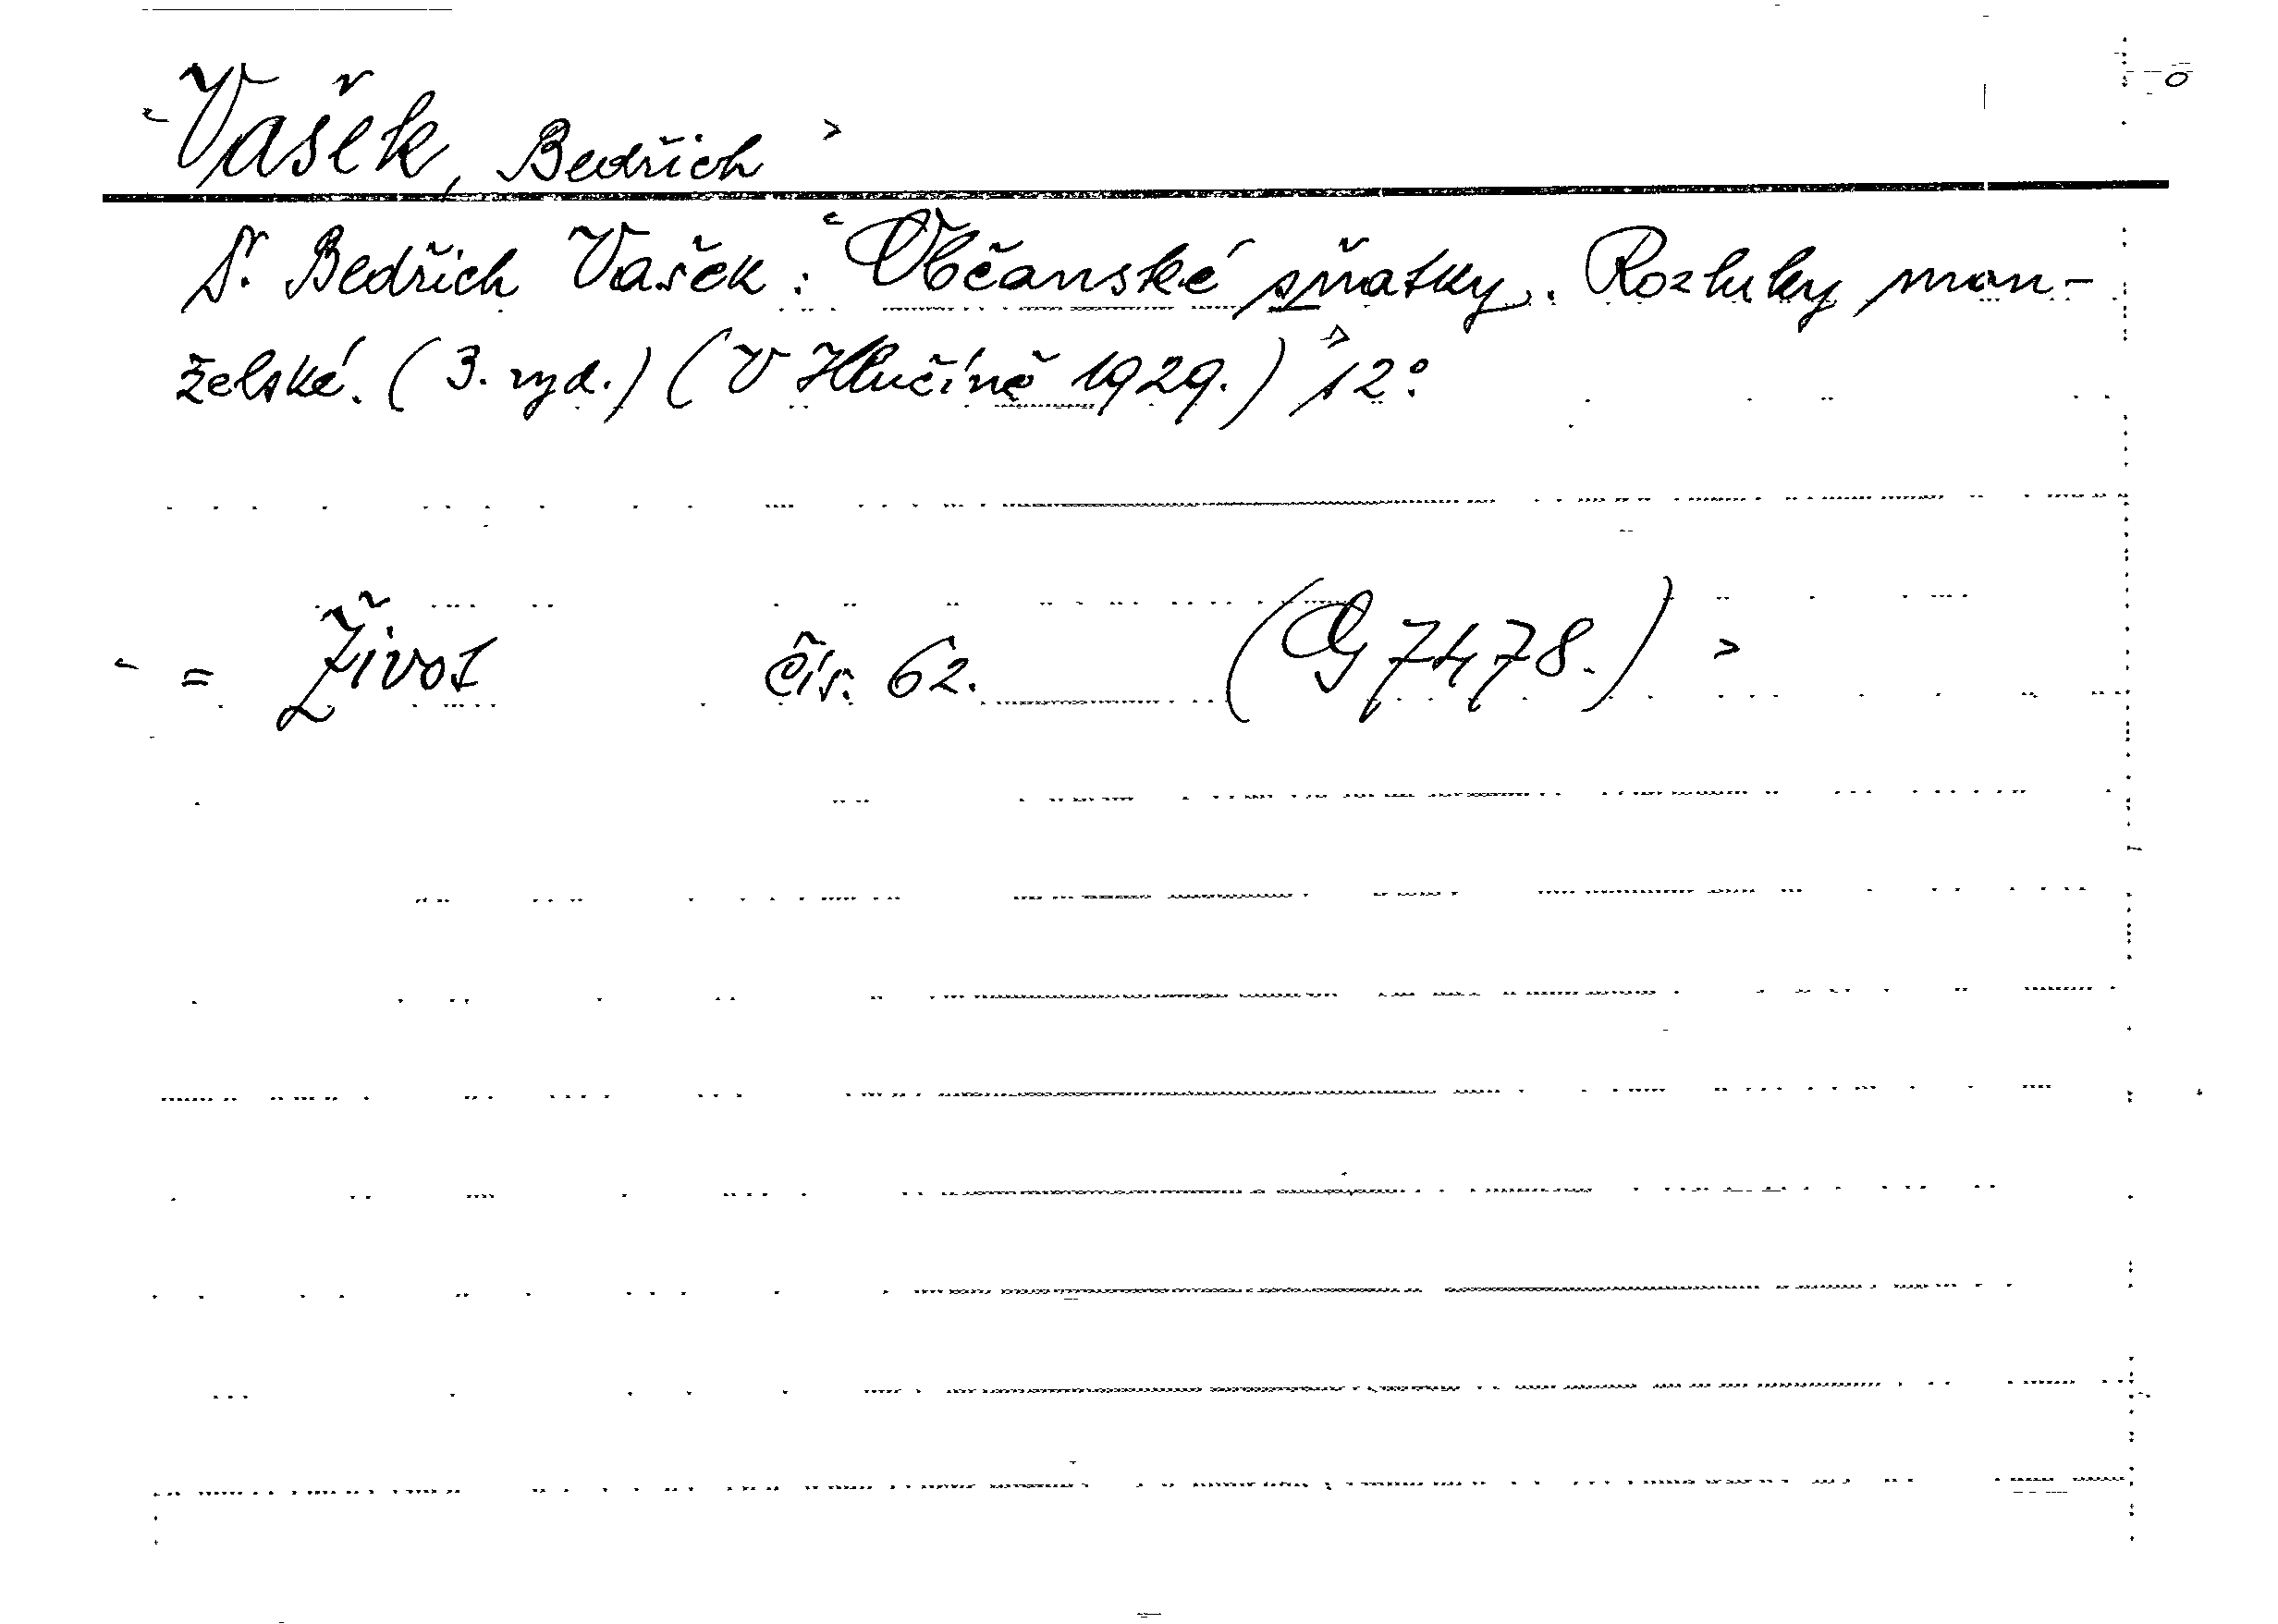 Vašek, Bedřich
Dr. Bedřich Vašek: Občanské sňatky. Rozluky man-
želské. (3. vyd.) (V Hlučíně 1929.) 12°.
= Život čís. 62. (G 7478.)